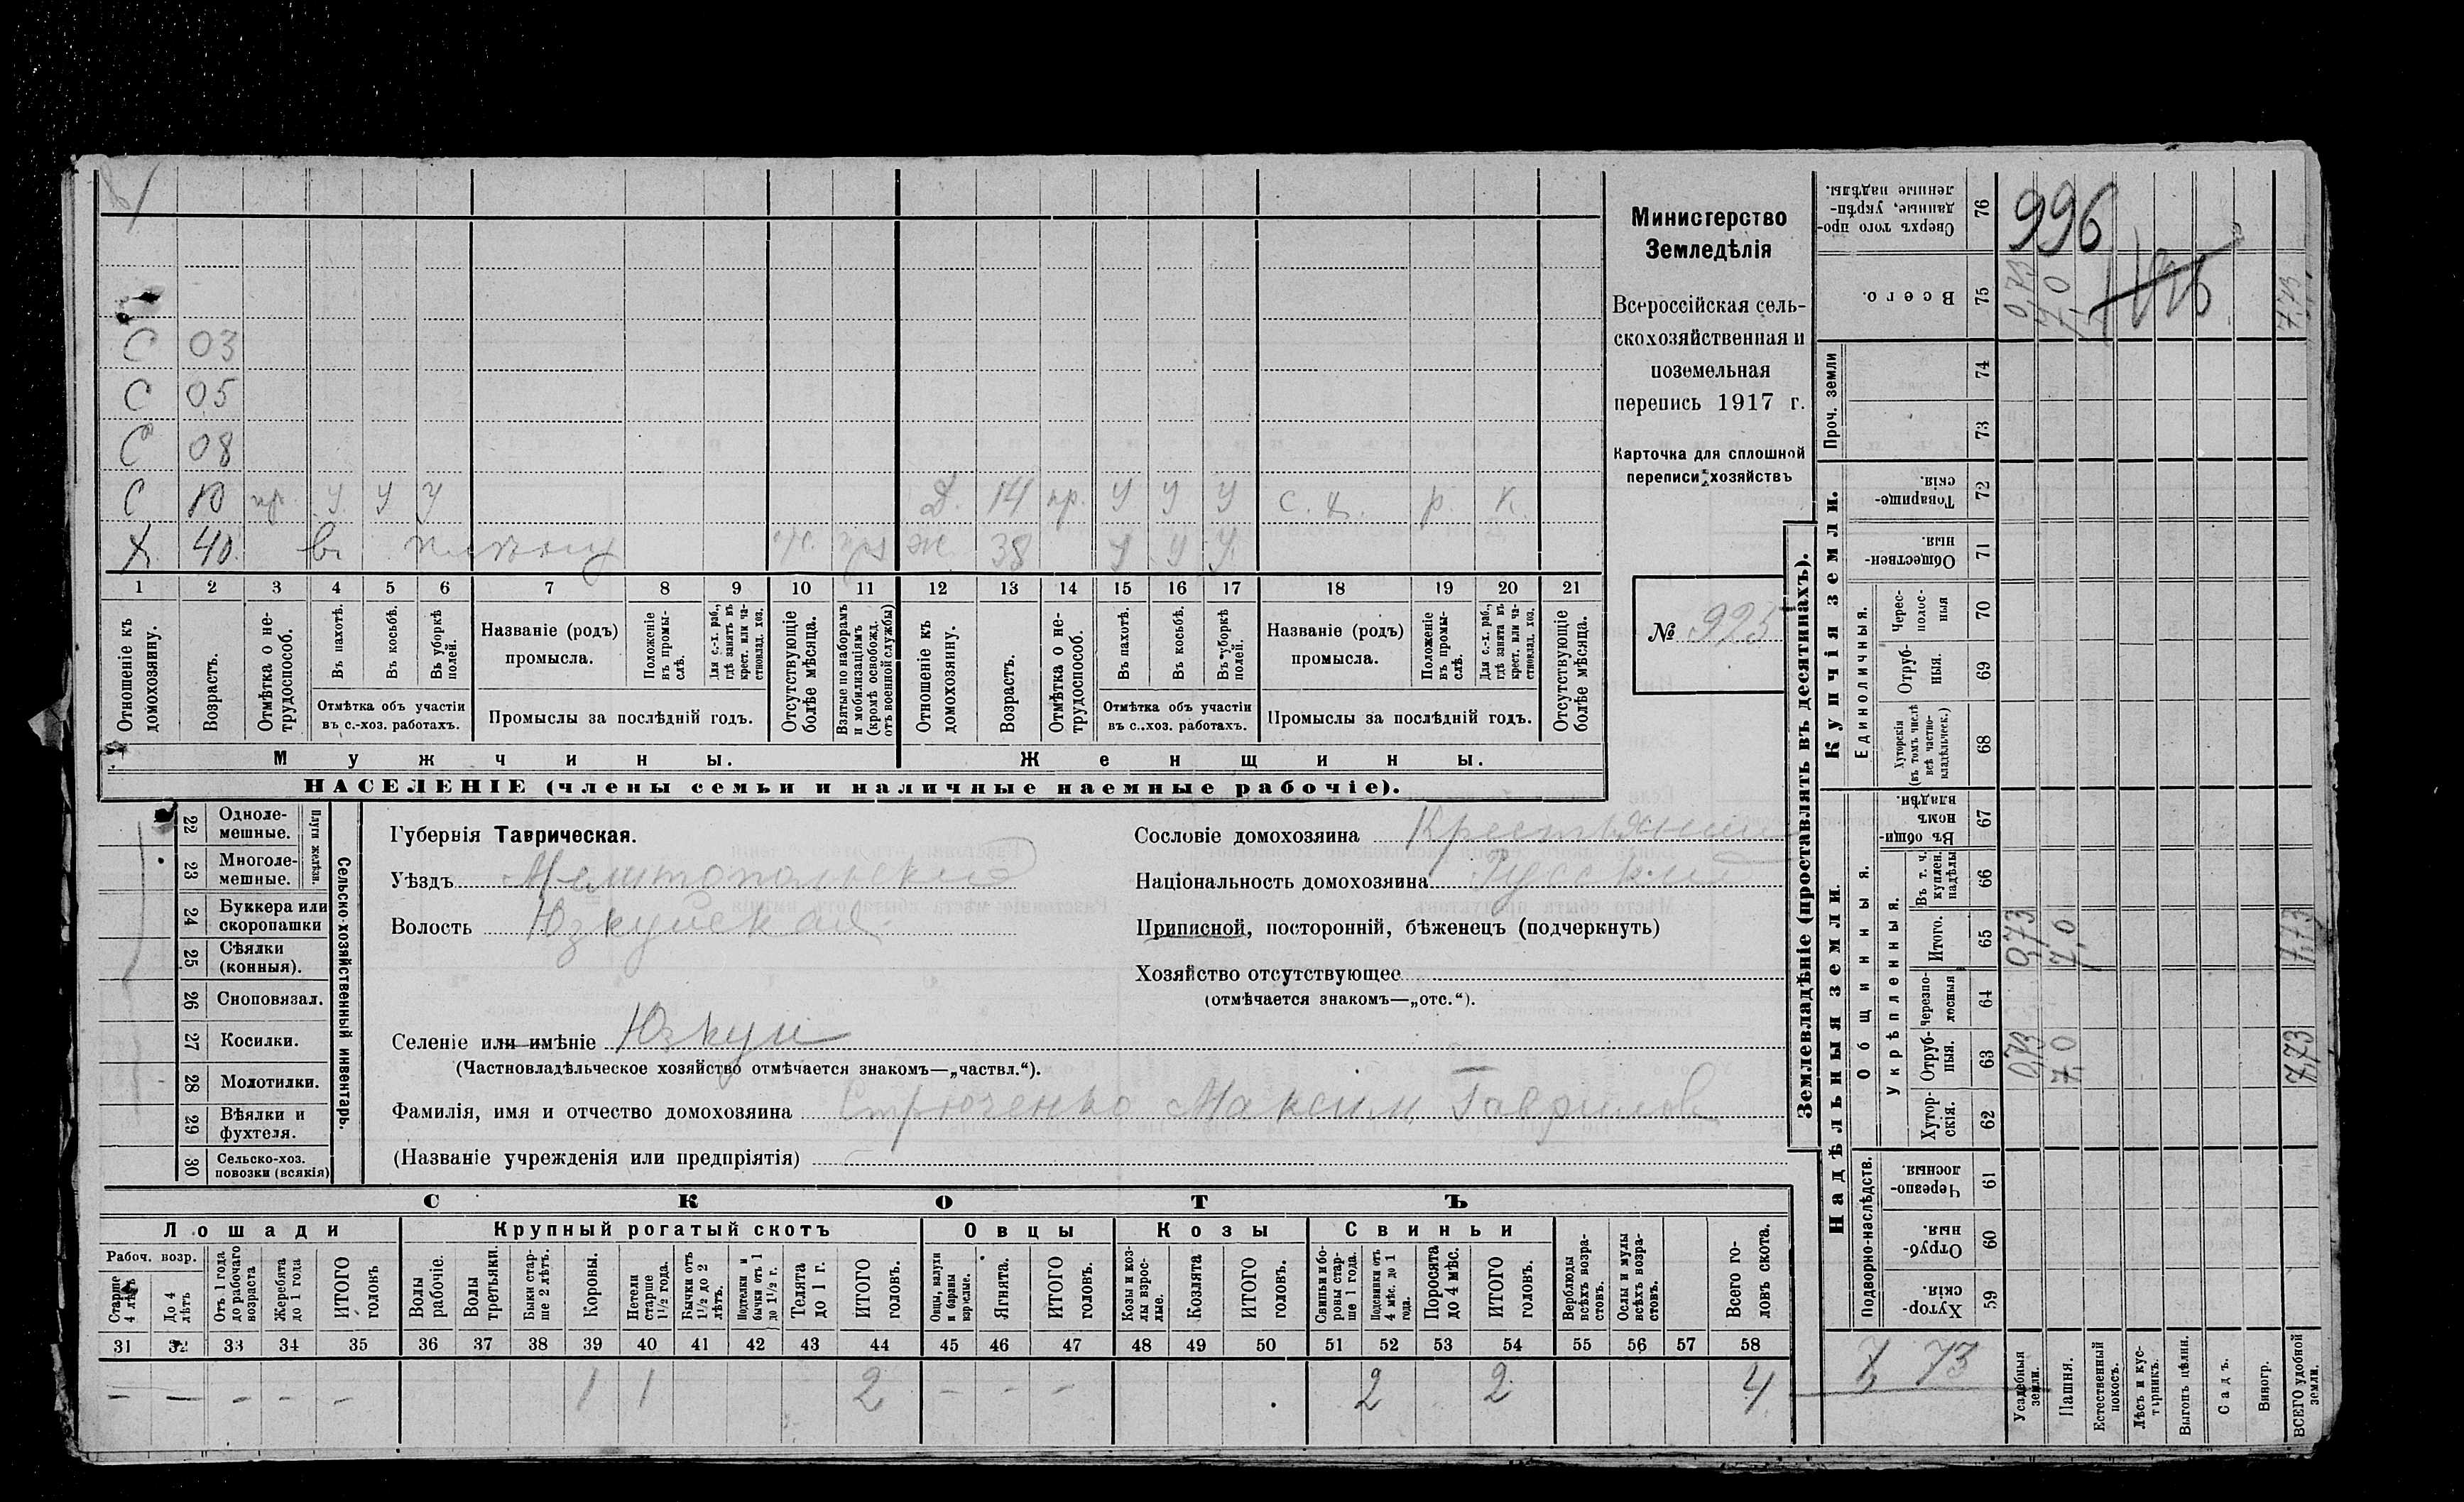 С 03
С 05
С 08
С 10 нр. У У У Д. 14 нр. У У У с. х. р. к.
Х. 40. въ плѣну ж 38 У У У
1 2 3 4 5 6 7 8 9 10 11 12 13 14 15 16 17 18 19 20 21
Отношеніе къ домохозяину.
Возрастъ.
Отмѣтка о нетрудоспособ.
Въ пахотѣ.
Въ косьбѣ.
Въ уборкѣ полей.
Отмѣтка объ участіи
въ с.-хоз. работахъ.
Названіе (родъ)
промысла.
Положеніе въ промыслѣ.
Для с.-х. раб., гдѣ занятъ въ крест. или частновлад. хоз.
Промыслы за послѣдній годъ.
Отсутствующіе болѣе мѣсяца.
Взятые по наборамъ и мобилизаціямъ (кромѣ освобожд. отъ военной службы)
Отношеніе къ домохозяину.
Возрастъ.
Отмѣтка о нетрудоспособ.
Въ пахотѣ.
Въ косьбѣ.
Въ уборкѣ полей.
Отмѣтка объ участіи
въ с.-хоз. работахъ.
Названіе (родъ)
промысла.
Положеніе въ промыслѣ.
Для с.-х. раб., гдѣ занята въ крест. или частновлад. хоз.
Промыслы за послѣдній годъ.
Отсутствующіе болѣе мѣсяца.
Мужчины.
Женщины.
НАСЕЛЕНІЕ (члены семьи и наличные наемные рабочіе).
Министерство
Земледѣлія
Всероссійская сель-
скохозяйственная и
поземельная
перепись 1917 г.
Карточка для сплошной
переписи хозяйствъ
№ 925
22 Одноле-
мешные.
23 Многоле-
мешные.
Плуги желѣзн.
24 Буккера или
скоропашки
25 Сѣялки
(конныя).
26 Сноповязал.
27 Косилки.
28 Молотилки.
29 Вѣялки и
фухтеля.
30 Сельско-хоз.
повозки (всякія)
Сельско-хозяйственный инвентарь.
Губернія Таврическая.
Уѣздъ Мелитопольский
Волость Юзкуйская
Селеніе или имѣніе Юзкуи
(Частновладѣльческое хозяйство отмѣчается знакомъ—„частвл.“).
Фамилія, имя и отчество домохозяина Стрюченко Максим Гаврилов
(Названіе учрежденія или предпріятія)
Сословіе домохозяина Крестьянин
Національность домохозяина Русский
Приписной, посторонній, бѣженецъ (подчеркнуть)
Хозяйство отсутствующее
(отмѣчается знакомъ—„отс.“).
СКОТЪ
Лошади Крупный рогатый скотъ Овцы Козы Свиньи
Рабоч. возр.
Старше 4 лѣтъ
До 4 лѣтъ
Отъ 1 года до рабочаго возраста
Жеребята до 1 года
ИТОГО головъ
Волы рабочіе.
Волы третьяки.
Быки старше 2 лѣтъ.
Коровы.
Нетели старше 1½ года.
Бычки отъ 1½ до 2 лѣтъ.
Подтелки и бычки отъ 1 до 1½ г.
Телята до 1 г.
ИТОГО головъ.
Овцы, валухи и бараны взрослые.
Ягнята.
ИТОГО головъ.
Козы и козлы взрослые.
Козлята
ИТОГО головъ.
Свиньи и боровы старше 1 года.
Подсвинки отъ 4 мѣс. до 1 года.
Поросята до 4 мѣс.
ИТОГО головъ.
Верблюды всѣхъ возрастовъ.
Ослы и мулы всѣхъ возрастовъ.
Всего головъ скота.
31 32 33 34 35 36 37 38 39 40 41 42 43 44 45 46 47 48 49 50 51 52 53 54 55 56 57 58
— — — — — 1 1 2 — — — 2 2 4
Землевладѣніе (проставлять въ десятинахъ).
Надѣльныя земли.
Купчія земли.
Проч. земли
Подворно-наслѣдств.
Общинныя.
Укрѣпленныя.
Единоличныя.
76 Сверхъ того проданные, укрѣпленные надѣлы.
75 Всего.
74
73
72 Товарищескія.
71 Общественныя.
70 Чересполосныя
69 Отрубныя.
68 Хуторскія (въ томъ числѣ всѣ частновладѣльческ.)
67 Въ общинномъ владѣн.
66 Въ т. ч. куплен. надѣлы
65 Итого.
64 Черезполосныя
63 Отрубныя.
62 Хуторскія.
61 Черезполосныя.
60 Отрубныя.
59 Хуторскія.
996
0,73 7,0 7,73
0,73 7,0 7,73
0,73 7,0 7,73
7,73
Усадебныя земли.
Пашня.
Естественный покосъ.
Лѣсъ и кустарникъ.
Выгонъ цѣлин.
Садъ.
Виногр.
ВСЕГО удобной земли.